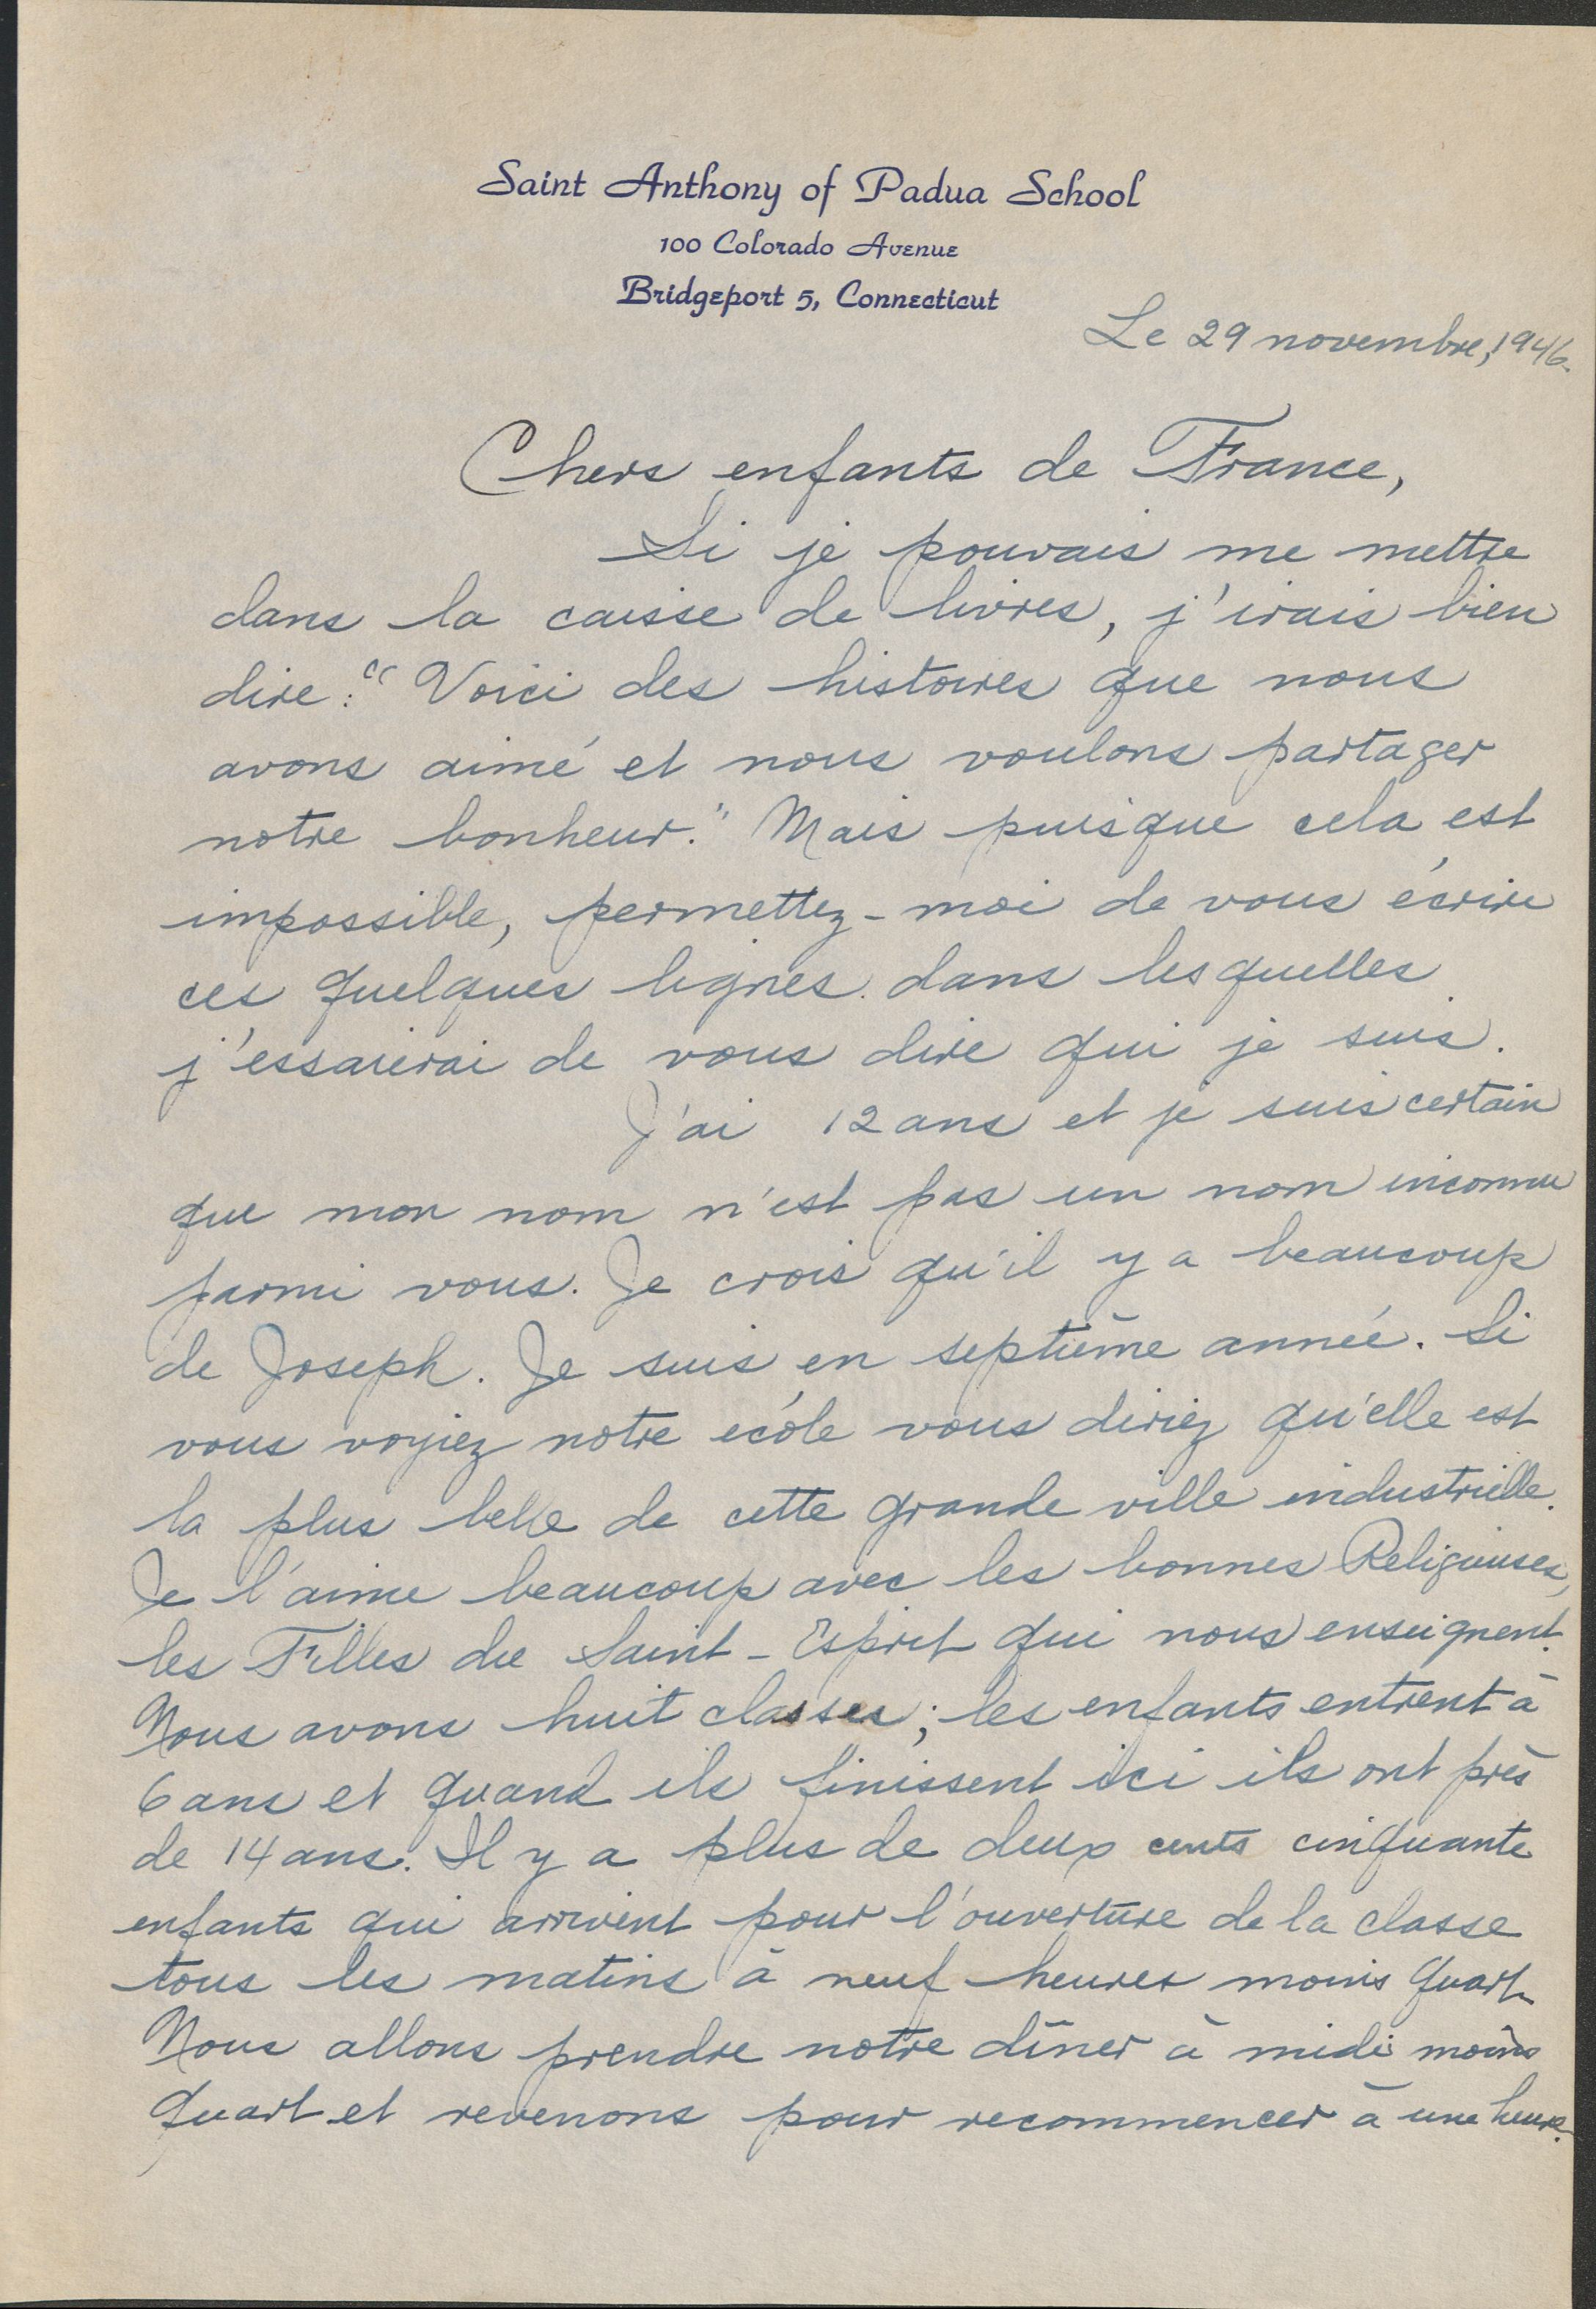 Saint Anthony of Padua School
100 Colorado Avenue
Bridgeport 5, Connecticut
Le 29 novembre, 1946.
Chers enfants de France,
Si je pouvais me mettre
dans la caisse de livres, j'irais bien
dire: "Voici des histoires que nous
avons aimé et nous voulons partager
notre bonheur." Mais puisque cela est
impossible, permettez-moi de vous écrire
ces quelques lignes dans lesquelles
j'essaierai de vous dire qui je suis.
J'ai 12 ans et je suis certain
que mon nom n'est pas un nom inconnu
parmi vous. Je crois qu'il y a beaucoup
de Joseph. Je suis en septième année. Si
vous voyiez notre école vous diriez qu'elle est
la plus belle de cette grande ville industrielle.
Je l'aime beaucoup avec les bonnes Religieuses,
les Filles du Saint-Esprit qui nous enseignent.
Nous avons huit classes; les enfants entrent à
6 ans et quand ils finissent ici ils ont près
de 14 ans. Il y a plus de deux cents cinquante
enfants qui arrivent pour l'ouverture de la classe
tous les matins à neuf heures moins quart.
Nous allons prendre notre dîner à midi moins
quart et revenons pour recommencer à une heure.